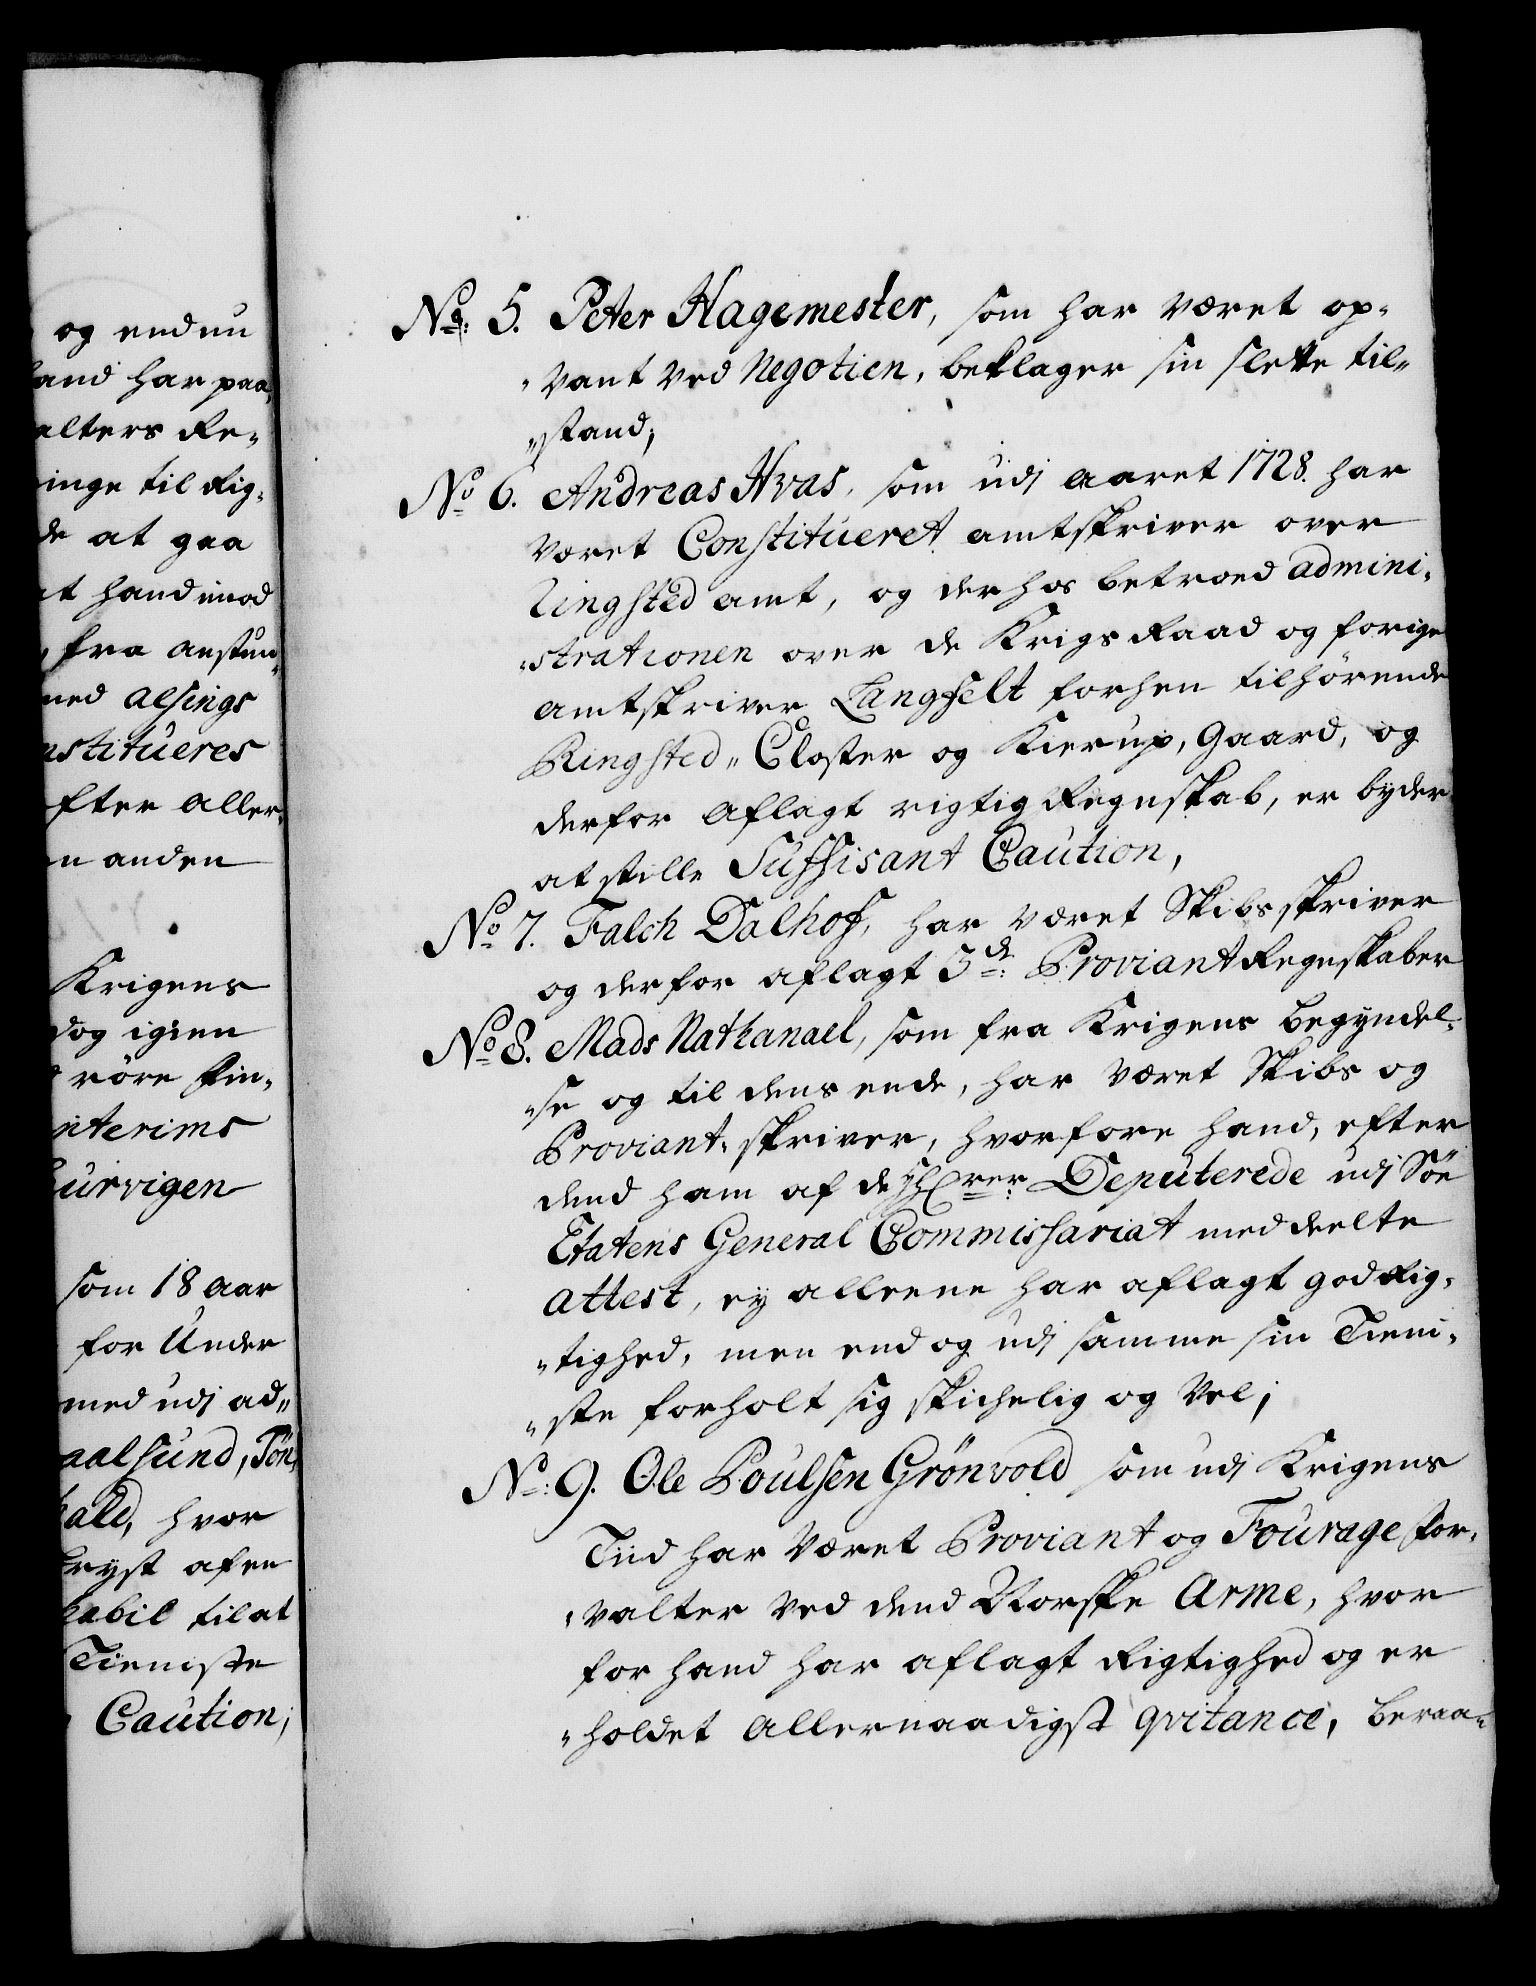 og endnu
hand har paa
alters Re-
inge til Rig-
de at gaa
at hand imod
fra anstun-
med Alsings
nstitueres
efter aller-
en anden
Krigens
dog igien
röre Fin-
nterims
Laurvigen
som 18 aar
for Under
med udj ad-
aalsund, Tön-
hald, hvor
tryst afen
habil til at
Tieniste
Caution;
No: 5. Peter Hagemester, som har været op-
-vant ved Negotien, beklager sin slette til-
-stand;
No 6. Andreas Hvas, som udj aaret 1728. har
været Constitueret amtskriver over
Ringsted amt, og derhos betroed admini-
-strationen over de Krigs Raad og forige
amtskriver Langhelt forhen tilhörende
Ringsted-Closter og Kierup, Gaard, og
derfor aflagt rigtig Regnskab, er byder
at stille Suffisant Caution,
No 7. Falch Dalhof, har været Skibsskriver
og derfor aflagt 3de: Proviant Regnskaber
No 8. Mads Nathanael, som fra Krigens begyndel-
-se og til dens ende, har været Skibs og
Proviant-skriver, hvorfore hand, efter
dend ham af de HErrer: Deputerede udj Söe
Etatens General Commissariat meddeelte
attest, ey alleene har aflagt god Rig-
-tighed, men end og udj samme sin Tieni-
-ste forholt sig skichelig og vel;
No: 9. Ole Poulsen Grönvold som udj Krigens
Tiid har været Proviant og Fourage for-
-valter ved dend Norske Arme, hvor
for hand har aflagt Rigtighed og er
-holdet allernaadigst qvitance, beraa-